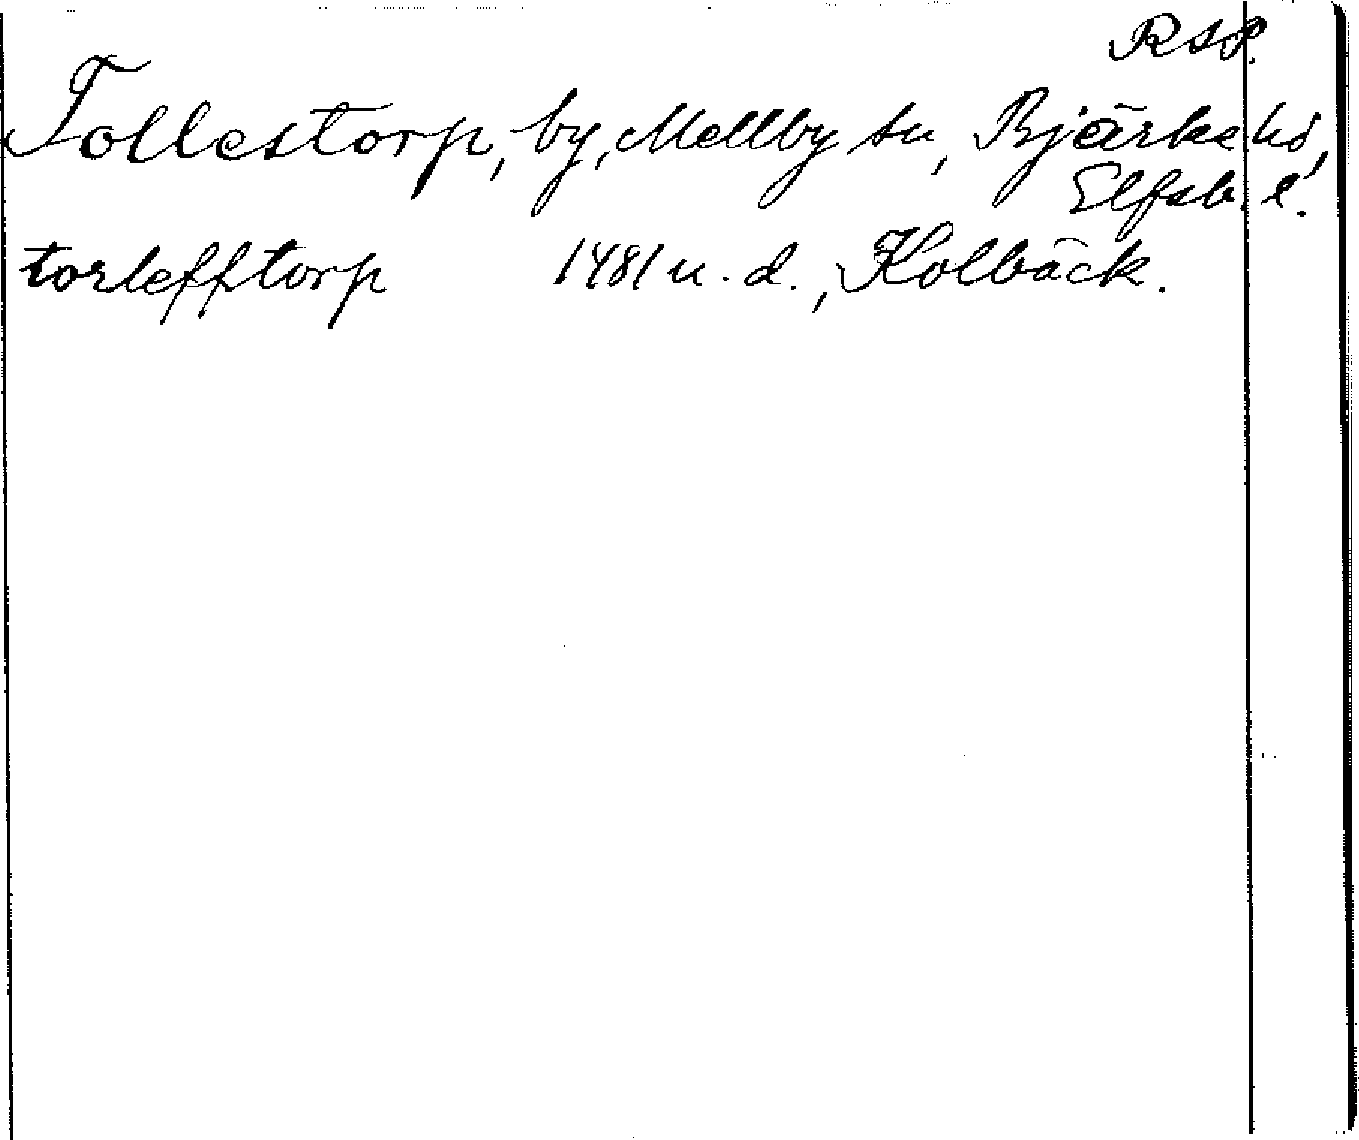 RSP.
Tollestorp, by, Mellby sn, Bjärke hd,
Elfsb. l.
torlefftorp 1481 u. d., Kolbäck.